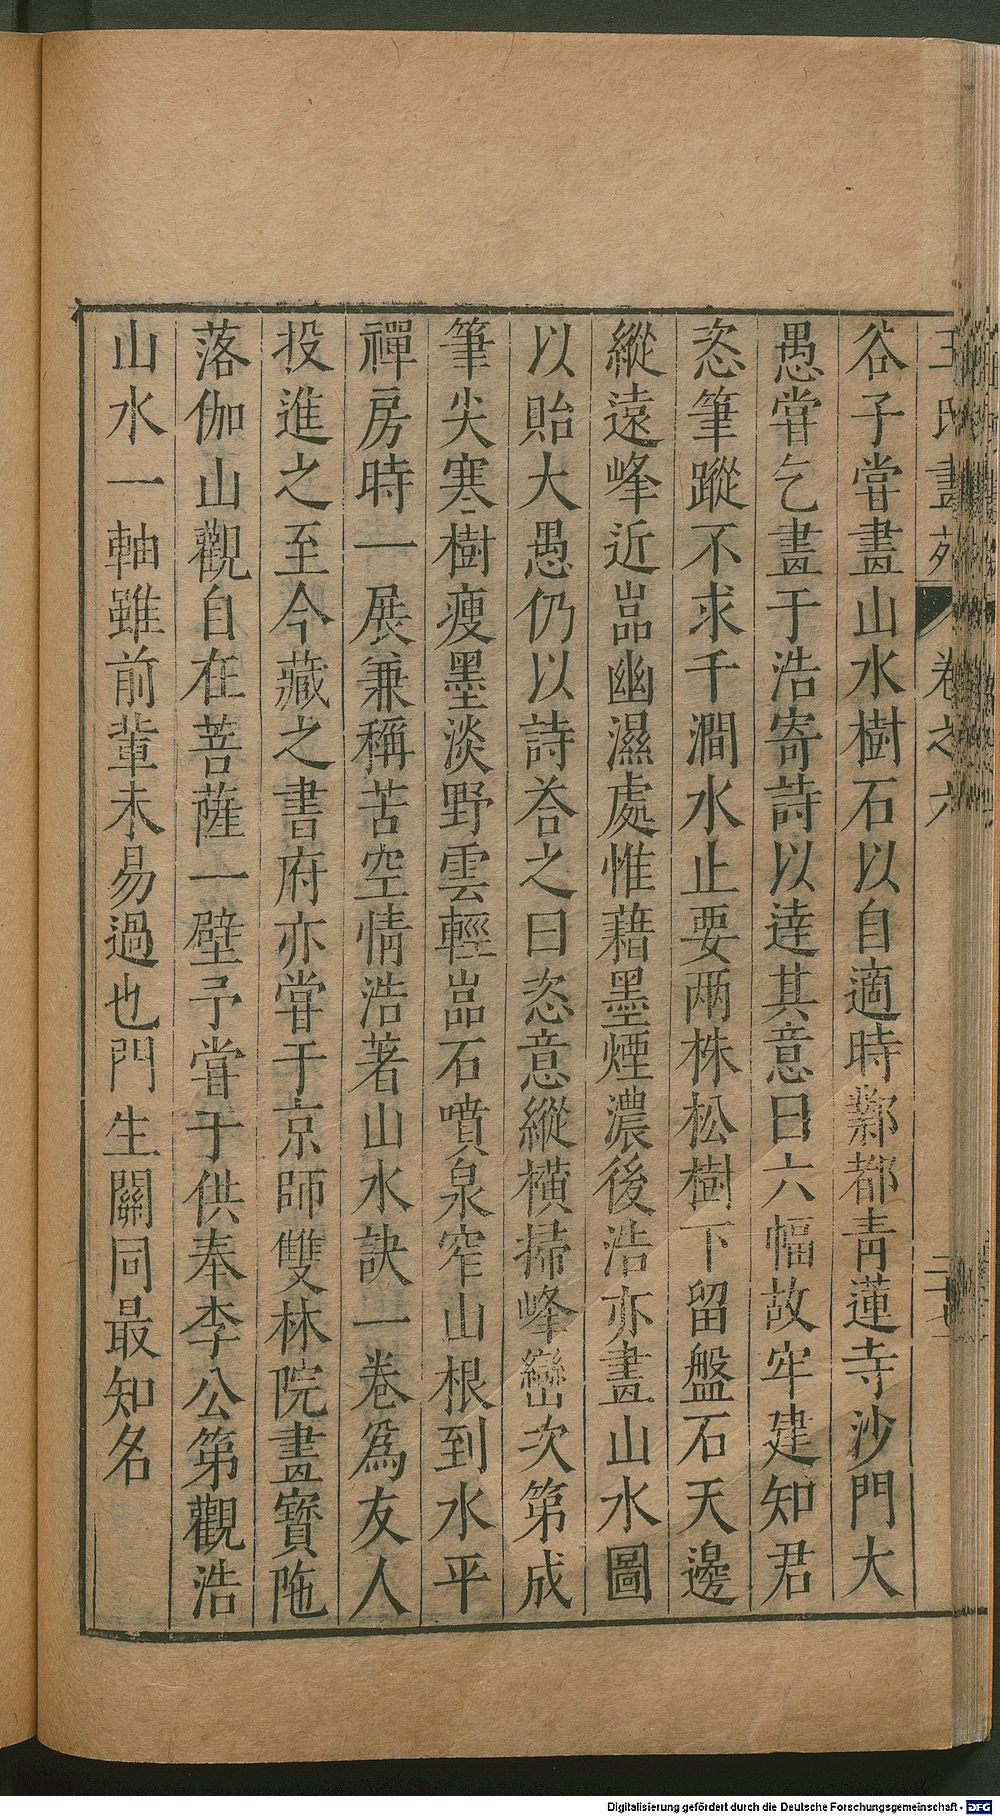 王氏畫苑 卷之六
谷子嘗畫山水樹石以自適時鄴都青蓮寺沙門大
愚嘗乞畫于浩寄詩以達其意曰六幅故牢建知君
恣筆蹤不求千澗水止要兩株松樹下留盤石天邊
縱遠峰近嵓幽濕處惟藉墨煙濃後浩亦畫山水圖
以貽大愚仍以詩荅之曰恣意縱橫掃峰巒次第成
筆尖寒樹瘦墨淡野雲輕嵓石噴泉窄山根到水平
禪房時一展兼稱苦空情浩著山水訣一卷爲友人
投進之至今藏之書府亦嘗于京師雙林院畫寳陁
落伽山觀自在菩薩一壁予嘗于供奉李公第觀浩
山水一軸雖前輩未易過也門生關同最知名
Digitalisierung gefördert durch die Deutsche Forschungsgemeinschaft - DFG